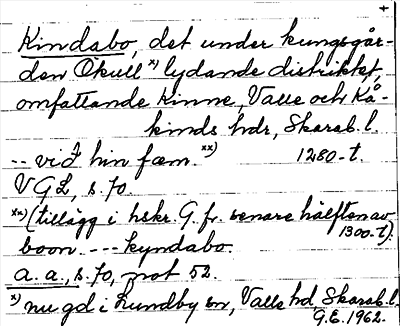 Kindabo, det under kungsgår-
den Okull x) lydande distriktet,
omfattande Kinne, Valle och Kå-
kinds hdr, Skarab. l.
-- við hin fæm. xx) 1280-t.
VGL, s. 70.
xx) (tillägg i hskr. G. fr. senare hälften av
1300-t).
boon. --- kyndabo.
a. a., s. 70, not 52.
x) nu gd i Lundby sn, Valle hd, Skarab. l.
G.E. 1962.